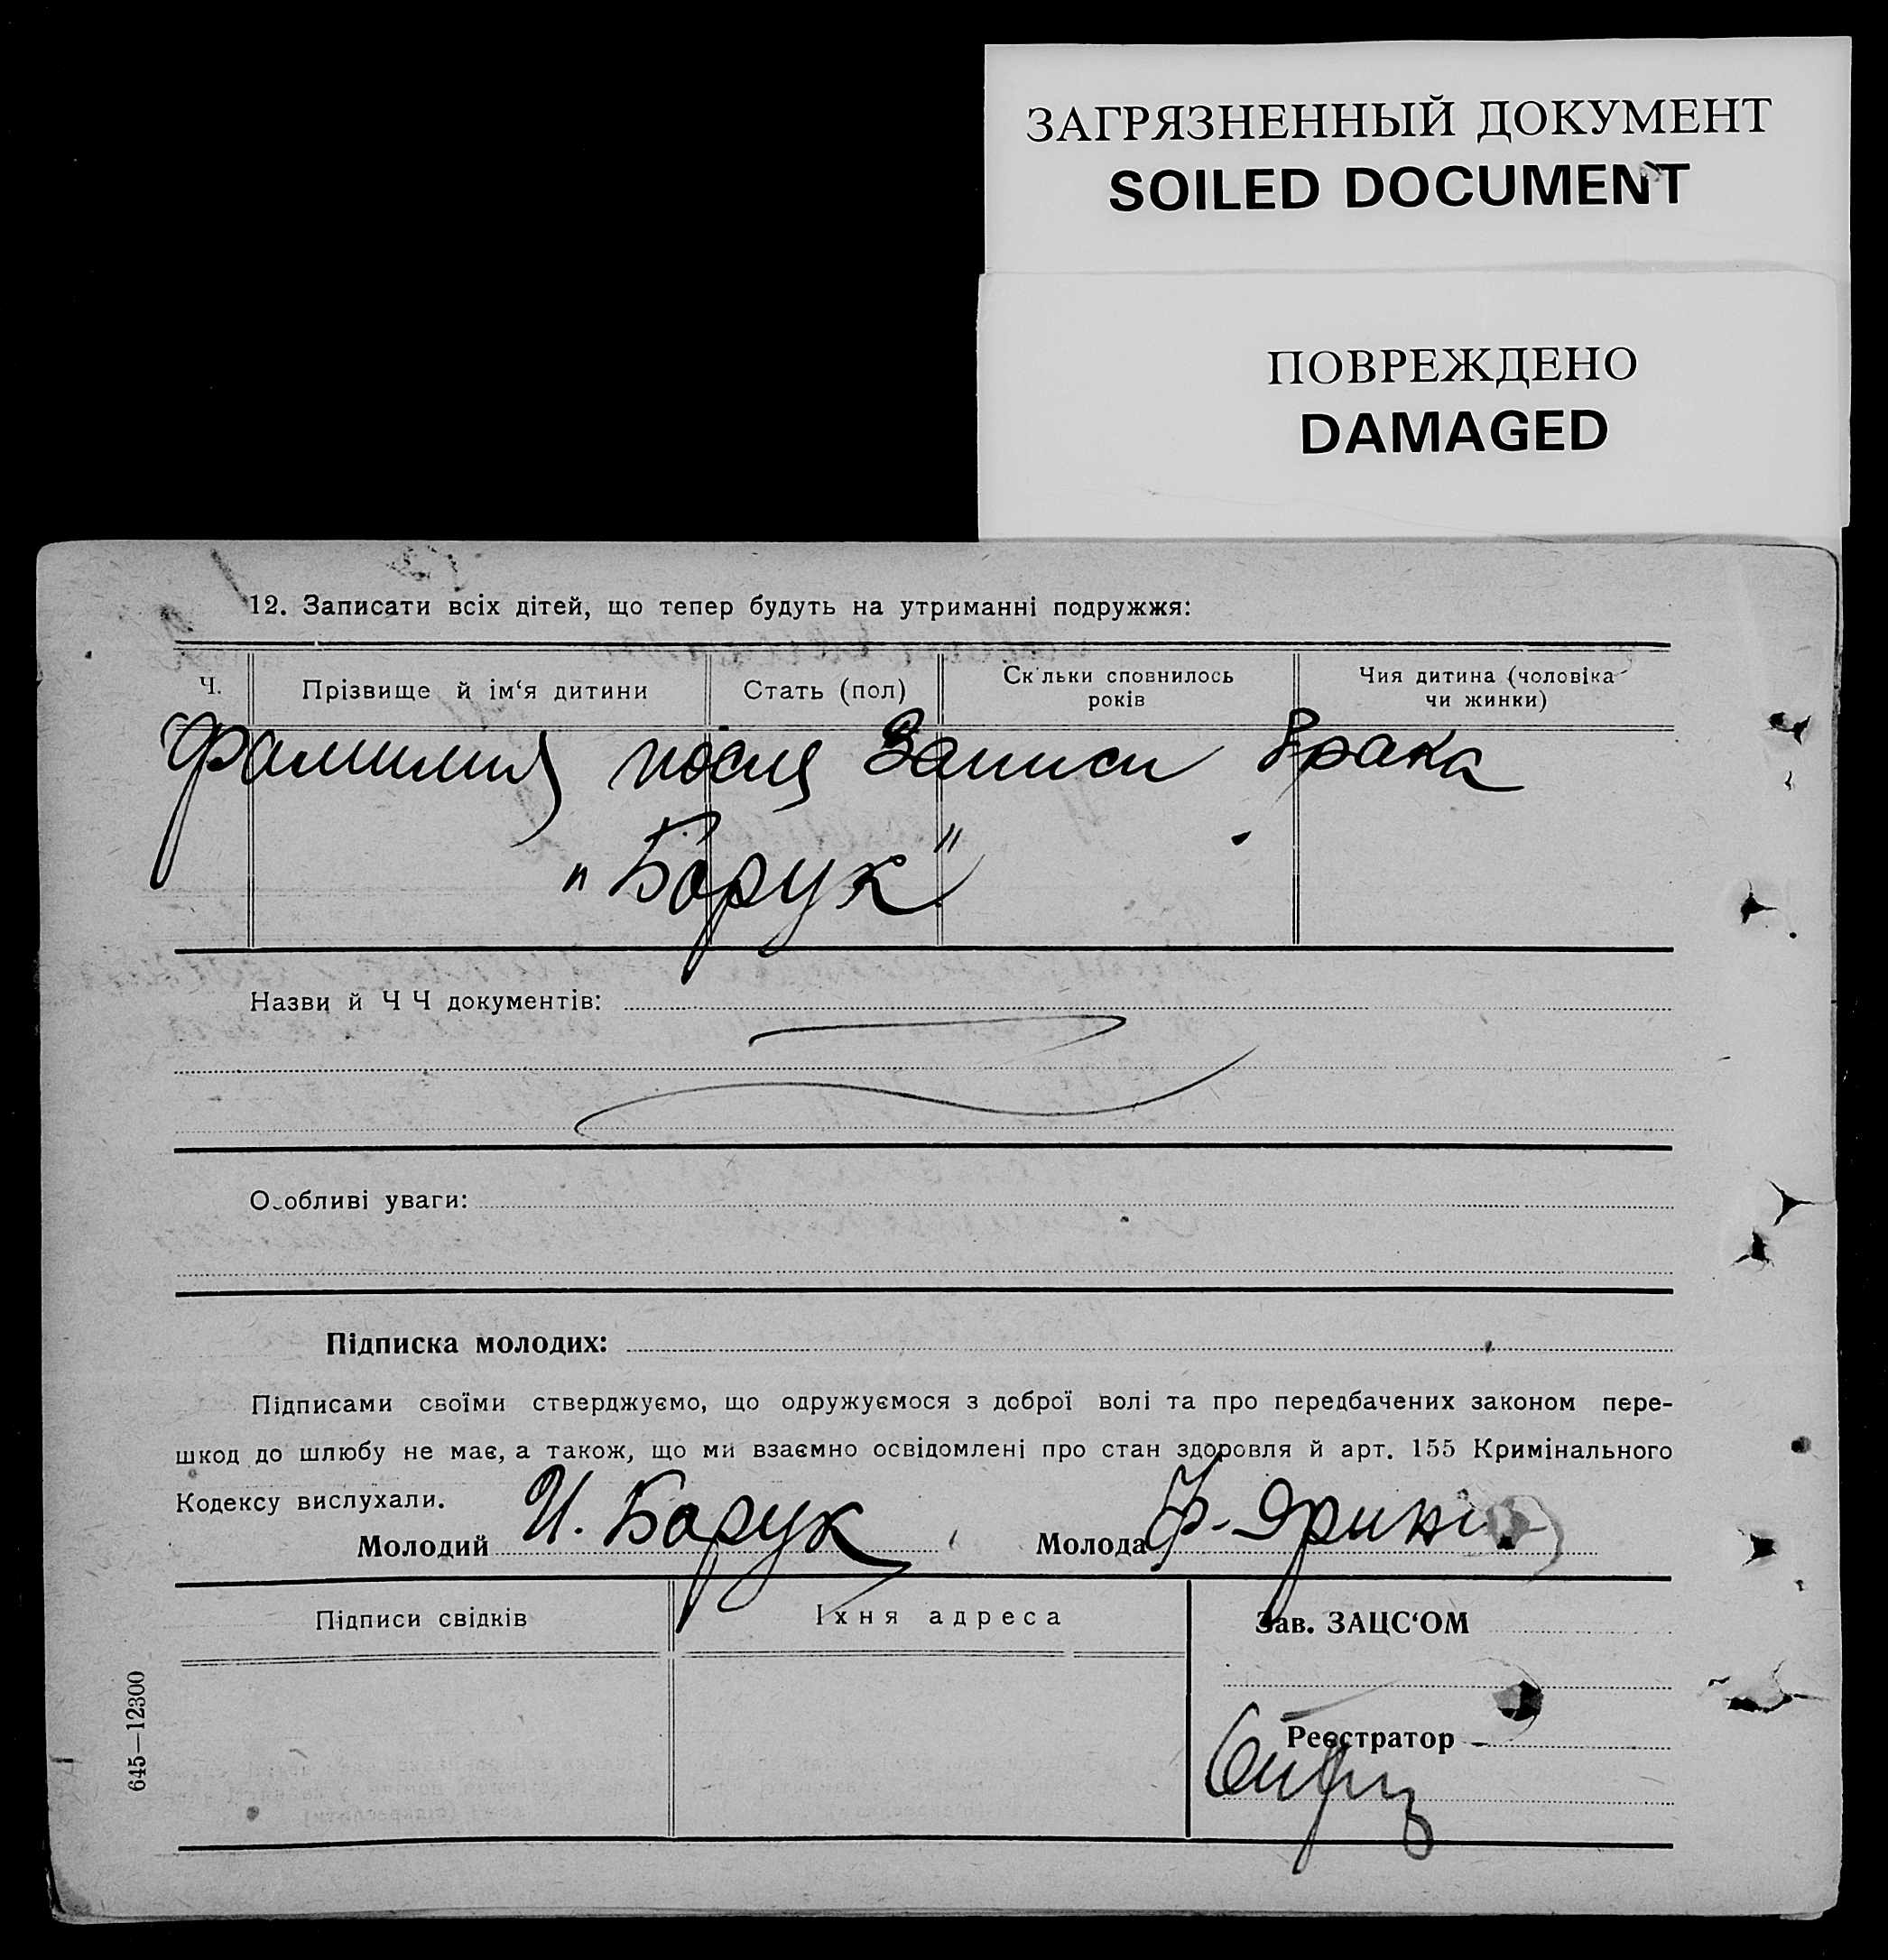 ЗАГРЯЗНЕННЫЙ ДОКУМЕНТ
SOILED DOCUMENT
ПОВРЕЖДЕНО
DAMAGED
12. Записати всіх дітей, що тепер будуть на утриманні подружжя:
Ч.
Прізвище й ім‘я дитини
Стать (пол)
Скільки сповнилось
років
Чия дитина (чоловіка
чи жинки)
Фамилия после Записи брака
„Борук"
Назви й Ч Ч документів:
Особливі уваги:
Підписка молодих:
Підписами своїми стверджуємо, що одружуємося з доброї волі та про передбачених законом пере-
шкод до шлюбу не має, а також, що ми взаємно освідомлені про стан здоровля й арт. 155 Кримінального
Кодексу вислухали.
Молодий И. Борук Молода Ф.
Підписи свідків
Їхня адреса
Зав. ЗАЦС‘ОМ
Реєстратор
645—12300